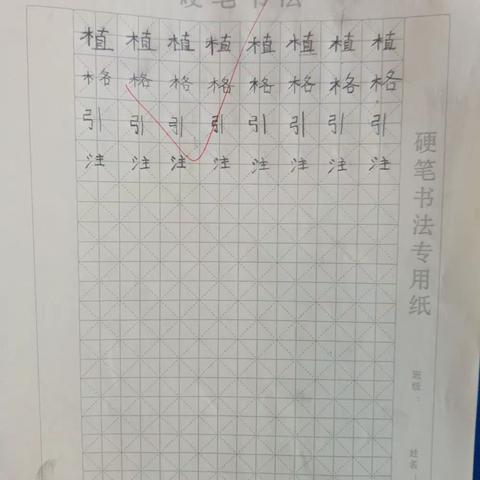 硬笔书法
植植植植植植植植
格格格格格格格格
引引引引引引引引
注注注注注注注注
硬笔书法专用纸
班级：
姓名：